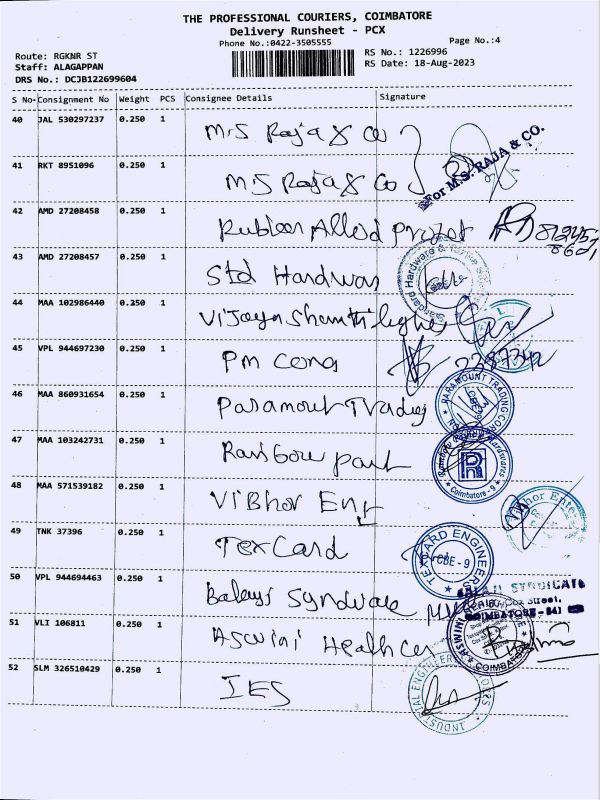 THE PROFESSIONAL COURIERS, COIMBATORE
Delivery Runsheet - PCX
Phone No.:0422-3505555
Page No.:4
Route: RGKNR ST
Staff: ALAGAPPAN
DRS No.: DCJB122699604
RS No.: 1226996
RS Date: 18-Aug-2023
S No Consignment No Weight PCS Consignee Details Signature
40 JAL 530297237 0.250 1 M.S Raja & Co
For M.S. RAJA & CO.
41 RKT 8951096 0.250 1 M.S Raja & Co
42 AMD 27208458 0.250 1 Allied
43 AMD 27208457 0.250 1 Std Hardwar
44 MAA 102986440 0.250 1 Vijaya Shanthi
45 VPL 944697230 0.250 1 PM
46 MAA 860931654 0.250 1 Paramount Trading
PARAMOUNT TRADING
47 MAA 103242731 0.250 1 Rainbow paint
Hardwares
Coimbatore - 9
48 MAA 571539182 0.250 1 Vibhor Eng
49 TNK 37396 0.250 1 Tex Card
TEXCARD ENGINEERS
CBE - 9
50 VPL 944694463 0.250 1 Balaji Syndicate
SYNDICATE
Street,
COIMBATORE - 641
51 VLI 106811 0.250 1 Aswini Health
ASWINI
COIMBATORE
52 SLM 326510429 0.250 1 IES
INDUSTRIAL ENGINEERING